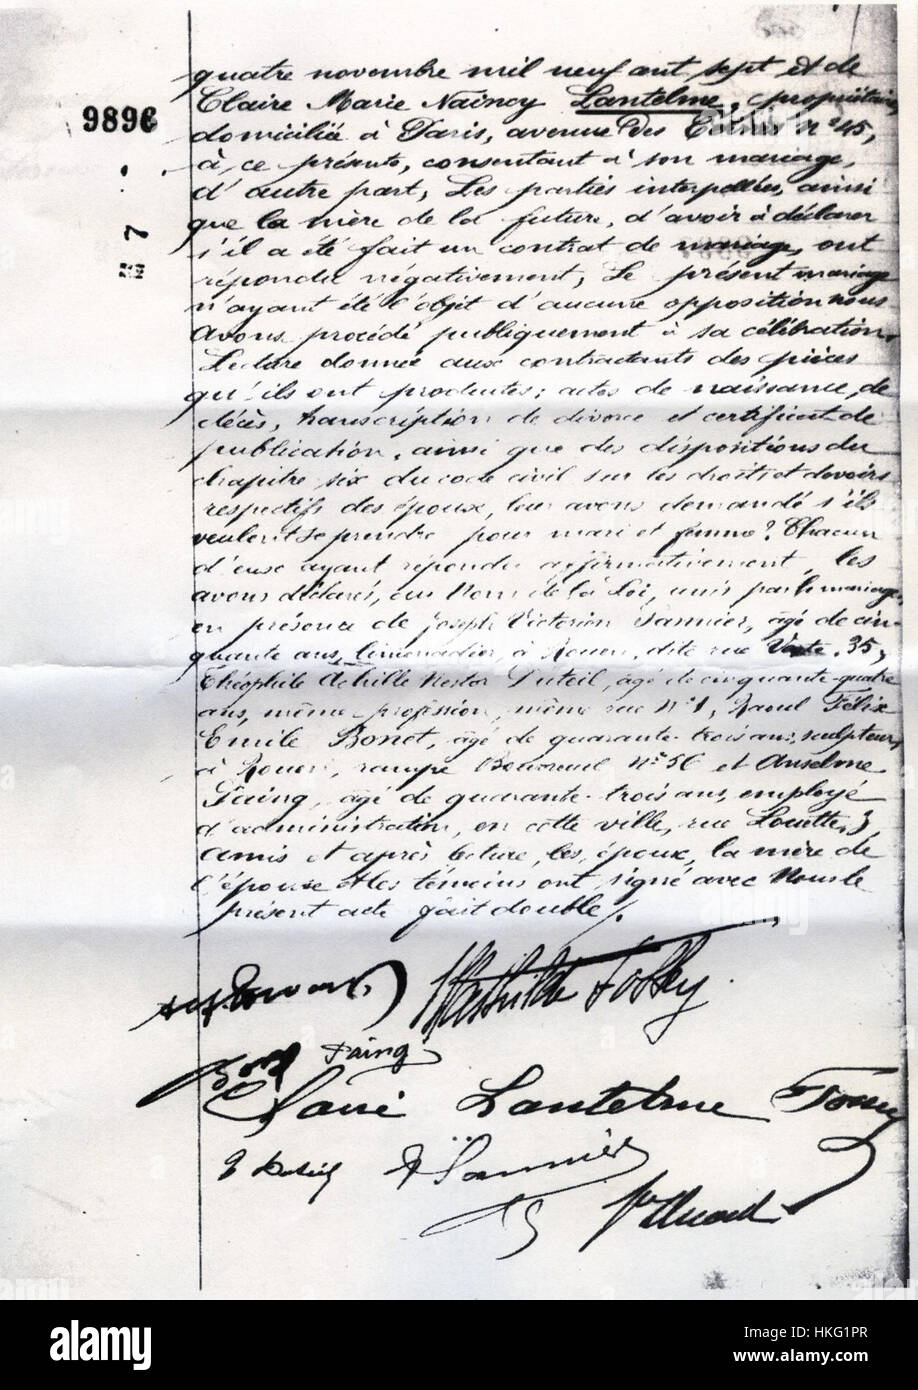 9896
7
quatre novembre mil neuf cent sept et de
Claire Marie Naincy Lantelme, propriétaire,
domiciliée à Paris, avenue des n° 45,
à ce présente, consentant à son mariage,
d'autre part, Les parties interpellées, ainsi
que la mère de la future, d'avoir à déclarer
s'il a été fait un contrat de mariage, ont
répondu négativement, Le présent mariage
n'ayant été l'objet d'aucune opposition nous
avons procédé publiquement à sa célébration.
Lecture donnée aux contractants des pièces
qu'ils ont produites; actes de naissance, de
décès, transcription de divorce et certificat de
publication, ainsi que des dispositions du
chapitre six du code civil sur les droits et devoirs
respectifs des époux, leur avons demandé s'ils
veulent se prendre pour mari et femme? Chacun
d'eux ayant répondu affirmativement, les
avons déclarés, au Nom de la Loi, unis par le mariage,
en présence de Joseph Victorien Sannier, âgé de cin-
quante ans, limonadier, à Rouen, dite rue Verte, 35,
Théophile Achille Nestor Duteil, âgé de cinquante-quatre
ans, même profession, même rue N° 1, Raoul Félix
Emile Bonet, âgé de quarante-trois ans, sculpteur,
à Rouen, rampe Bouvreuil N° 56 et Anselme
Faing, âgé de quarante-trois ans, employé
d'administration, en cette ville, rue Louette, 3
amis et après lecture, les époux, la mère de
l'épouse et les témoins ont signé avec Nous le
présent acte fait double.
Mathilde Fossey
Faing
Claire Lantelme Fossey
Sannier
alamy
Image ID: HKG1PR
www.alamy.com